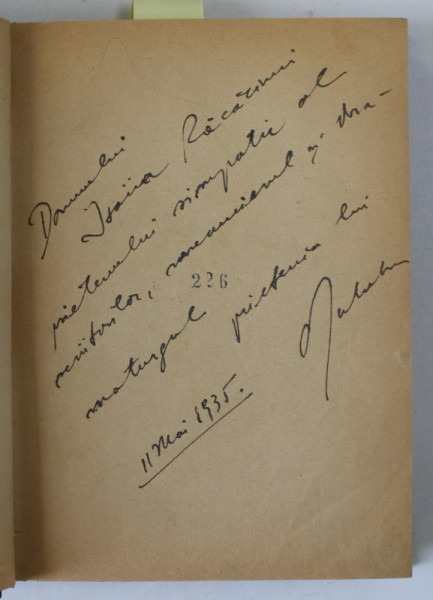 Domnului
Isaiia Răcăciuni
prietenului simpatic al
scriitorilor, romancierul și dra-
maturgul prietenia lui
226
11 Mai 1935.